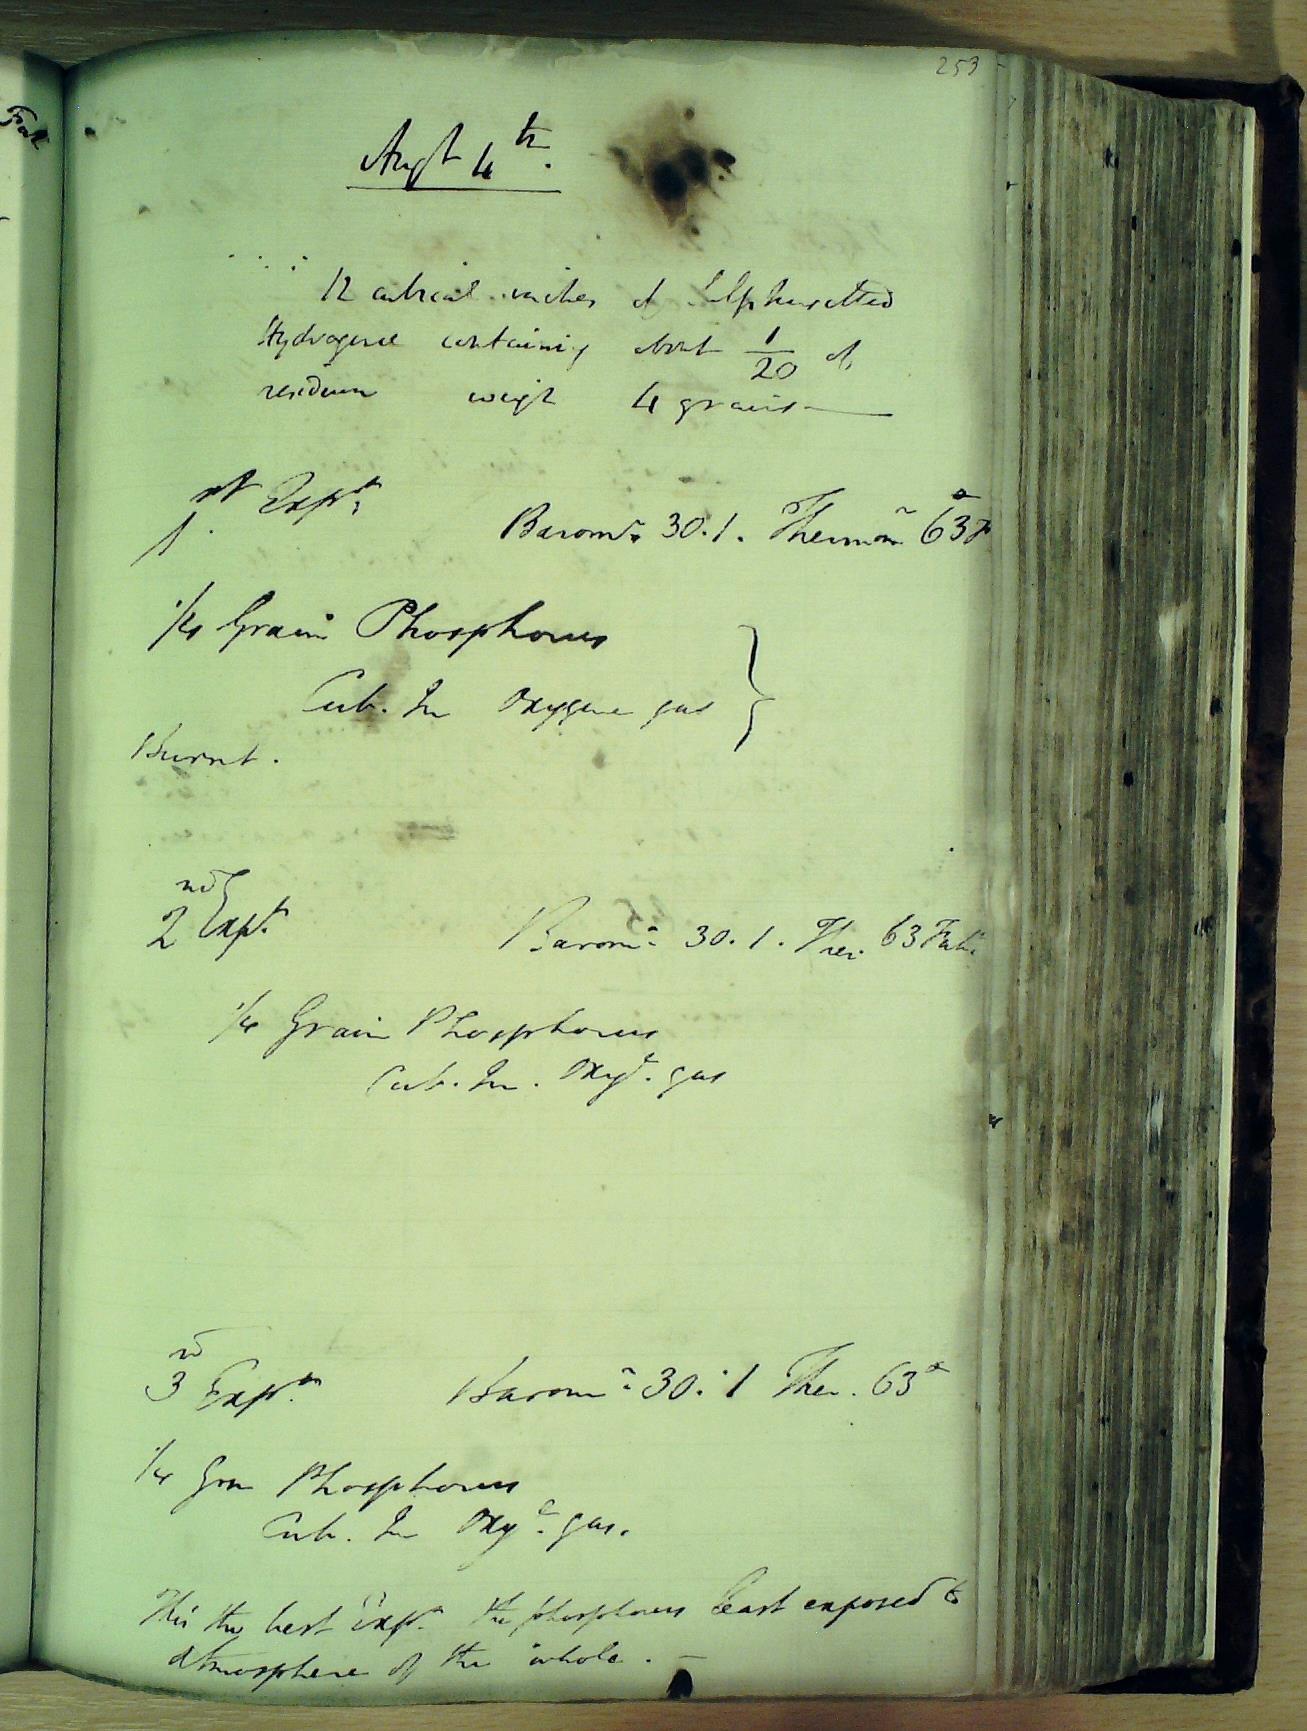 253
Augt 4th.
12 cubical inches of Sulphuretted
Hydrogene containing about 1/20 of
residuum weigh 4 grains
1st Expt. Baromr. 30.1. Thermomr. 63°F
1/4 Grain Phosphorus
Cub. In Oxygene gas
Burnt.
2nd Expt. Baromr. 30.1. Ther. 63 Fah.
1/4 Grain Phosphorus
Cub. In. Oxye. gas
3rd Expt. Baromr. 30.1 Ther. 63°
1/4 Grn Phosphorus
Cub. In Oxye. gas.
This the best Expt. the phosphorus least exposed to
atmosphere of the whole. –
Fah